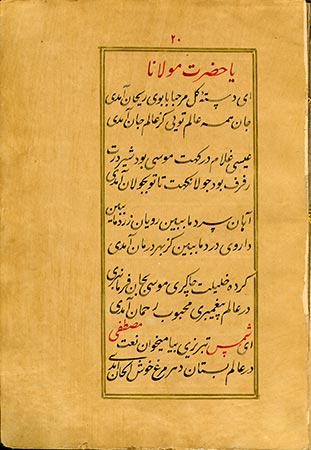 ۲۰
یا حضرت مولانا
ای دستهٔ گل مرحبا با بوی ریحان آمدی
جان همه عالم تویی کز عالم جان آمدی
عیسی غلام درگهت موسی بود شیر درت
رفرف بود جولانگهت تا تو بجولان آمدی
آهان سرد ما ببین رویان زرد ما ببین
داروی درد ما ببین کز بهر درمان آمدی
کرده خلیلت چاکری موسی بجان فرمانبری
در عالم پیغمبری محبوب رحمان آمدی
ای شمس تبریزی بیا میخوان نعت مصطفی
در عالم بستان دهر مرغ خوش الحان آمدی